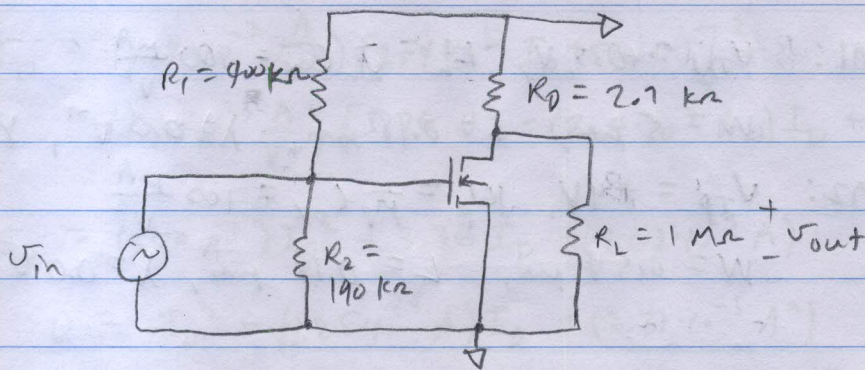 R₁ = 400kΩ
R_D = 2.7 kΩ
v_in
R₂ =
190 kΩ
R_L = 1 MΩ
+
v_out
-